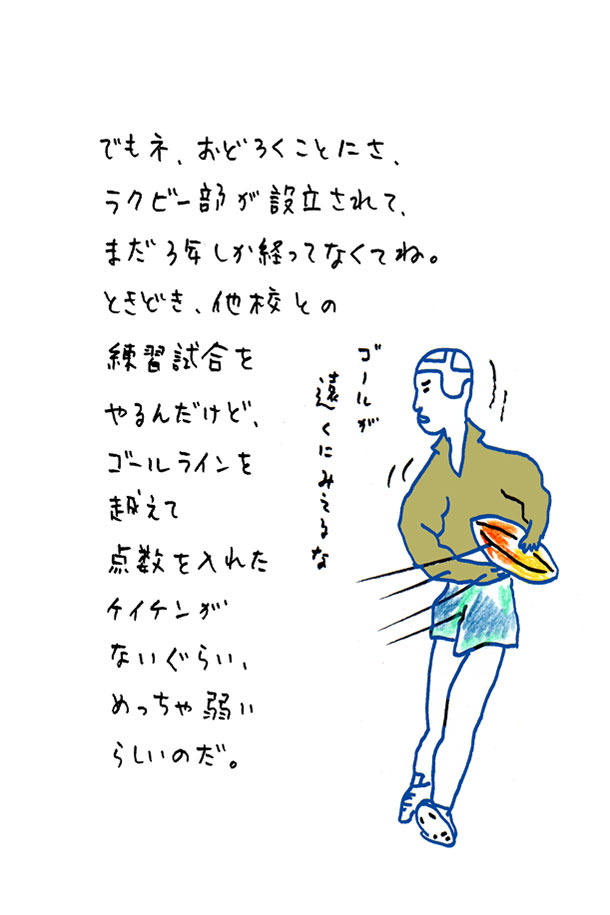 でもネ、おどろくことにさ、
ラクビー部が設立されて、
まだ3年しか経ってなくてね。
ときどき、他校との
練習試合を
やるんだけど、
ゴールラインを
越えて
点数を入れた
ケイケンが
ないぐらい、
めっちゃ弱い
らしいのだ。
ゴールが
遠くにみえるな